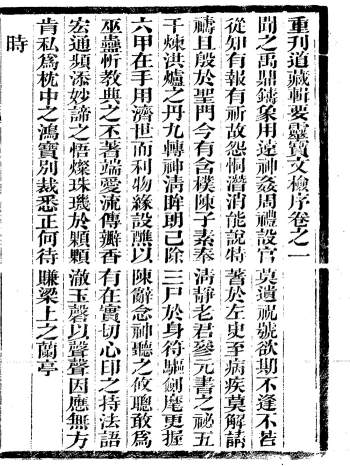 重刊道藏輯要靈寶文檢序卷之一
聞之禹鼎鑄象用遠神姦周禮設官莫遺祝號欲期不逢不若
從知有報有祈故怨恫潛消能說特著於左史至病疾莫解請
禱且殷於聖門今有含樸陳子素奉清靜老君參元書之祕五
千煉洪爐之丹九轉神清眸朗已除三尸於身符驅劍麾更握
六甲在手用濟世而利物緣設醮以陳辭念神聽之攸聰敢為
巫蠱祈教典之丕著端愛流傳瓣香有在實切心印之持法語
宏通頻添妙諦之悟燦珠璣於顆顆澈玉聲以聲聲因應無方
肯私為枕中之鴻寶別裁悉正何待賺梁上之蘭亭
時